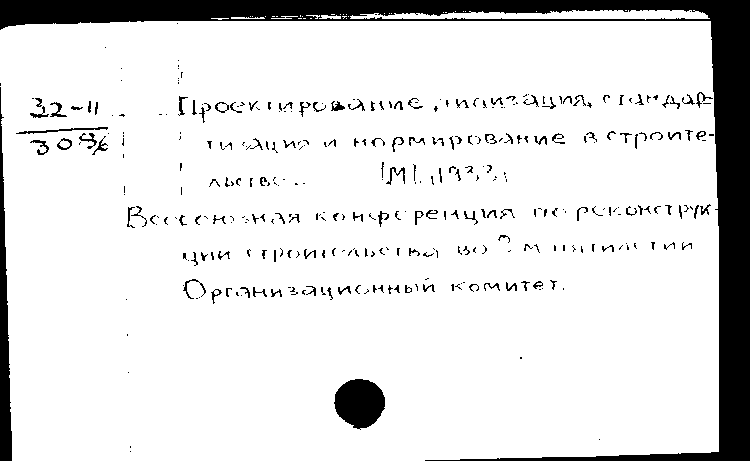 32-11
Проектирование, типизация, стандар-
309/6
тизация и нормирование в строите-
льстве... [М], 1933,
Всесоюзная конференция по реконструк-
ции строительства во 2-м пятилетии
Организационный комитет.